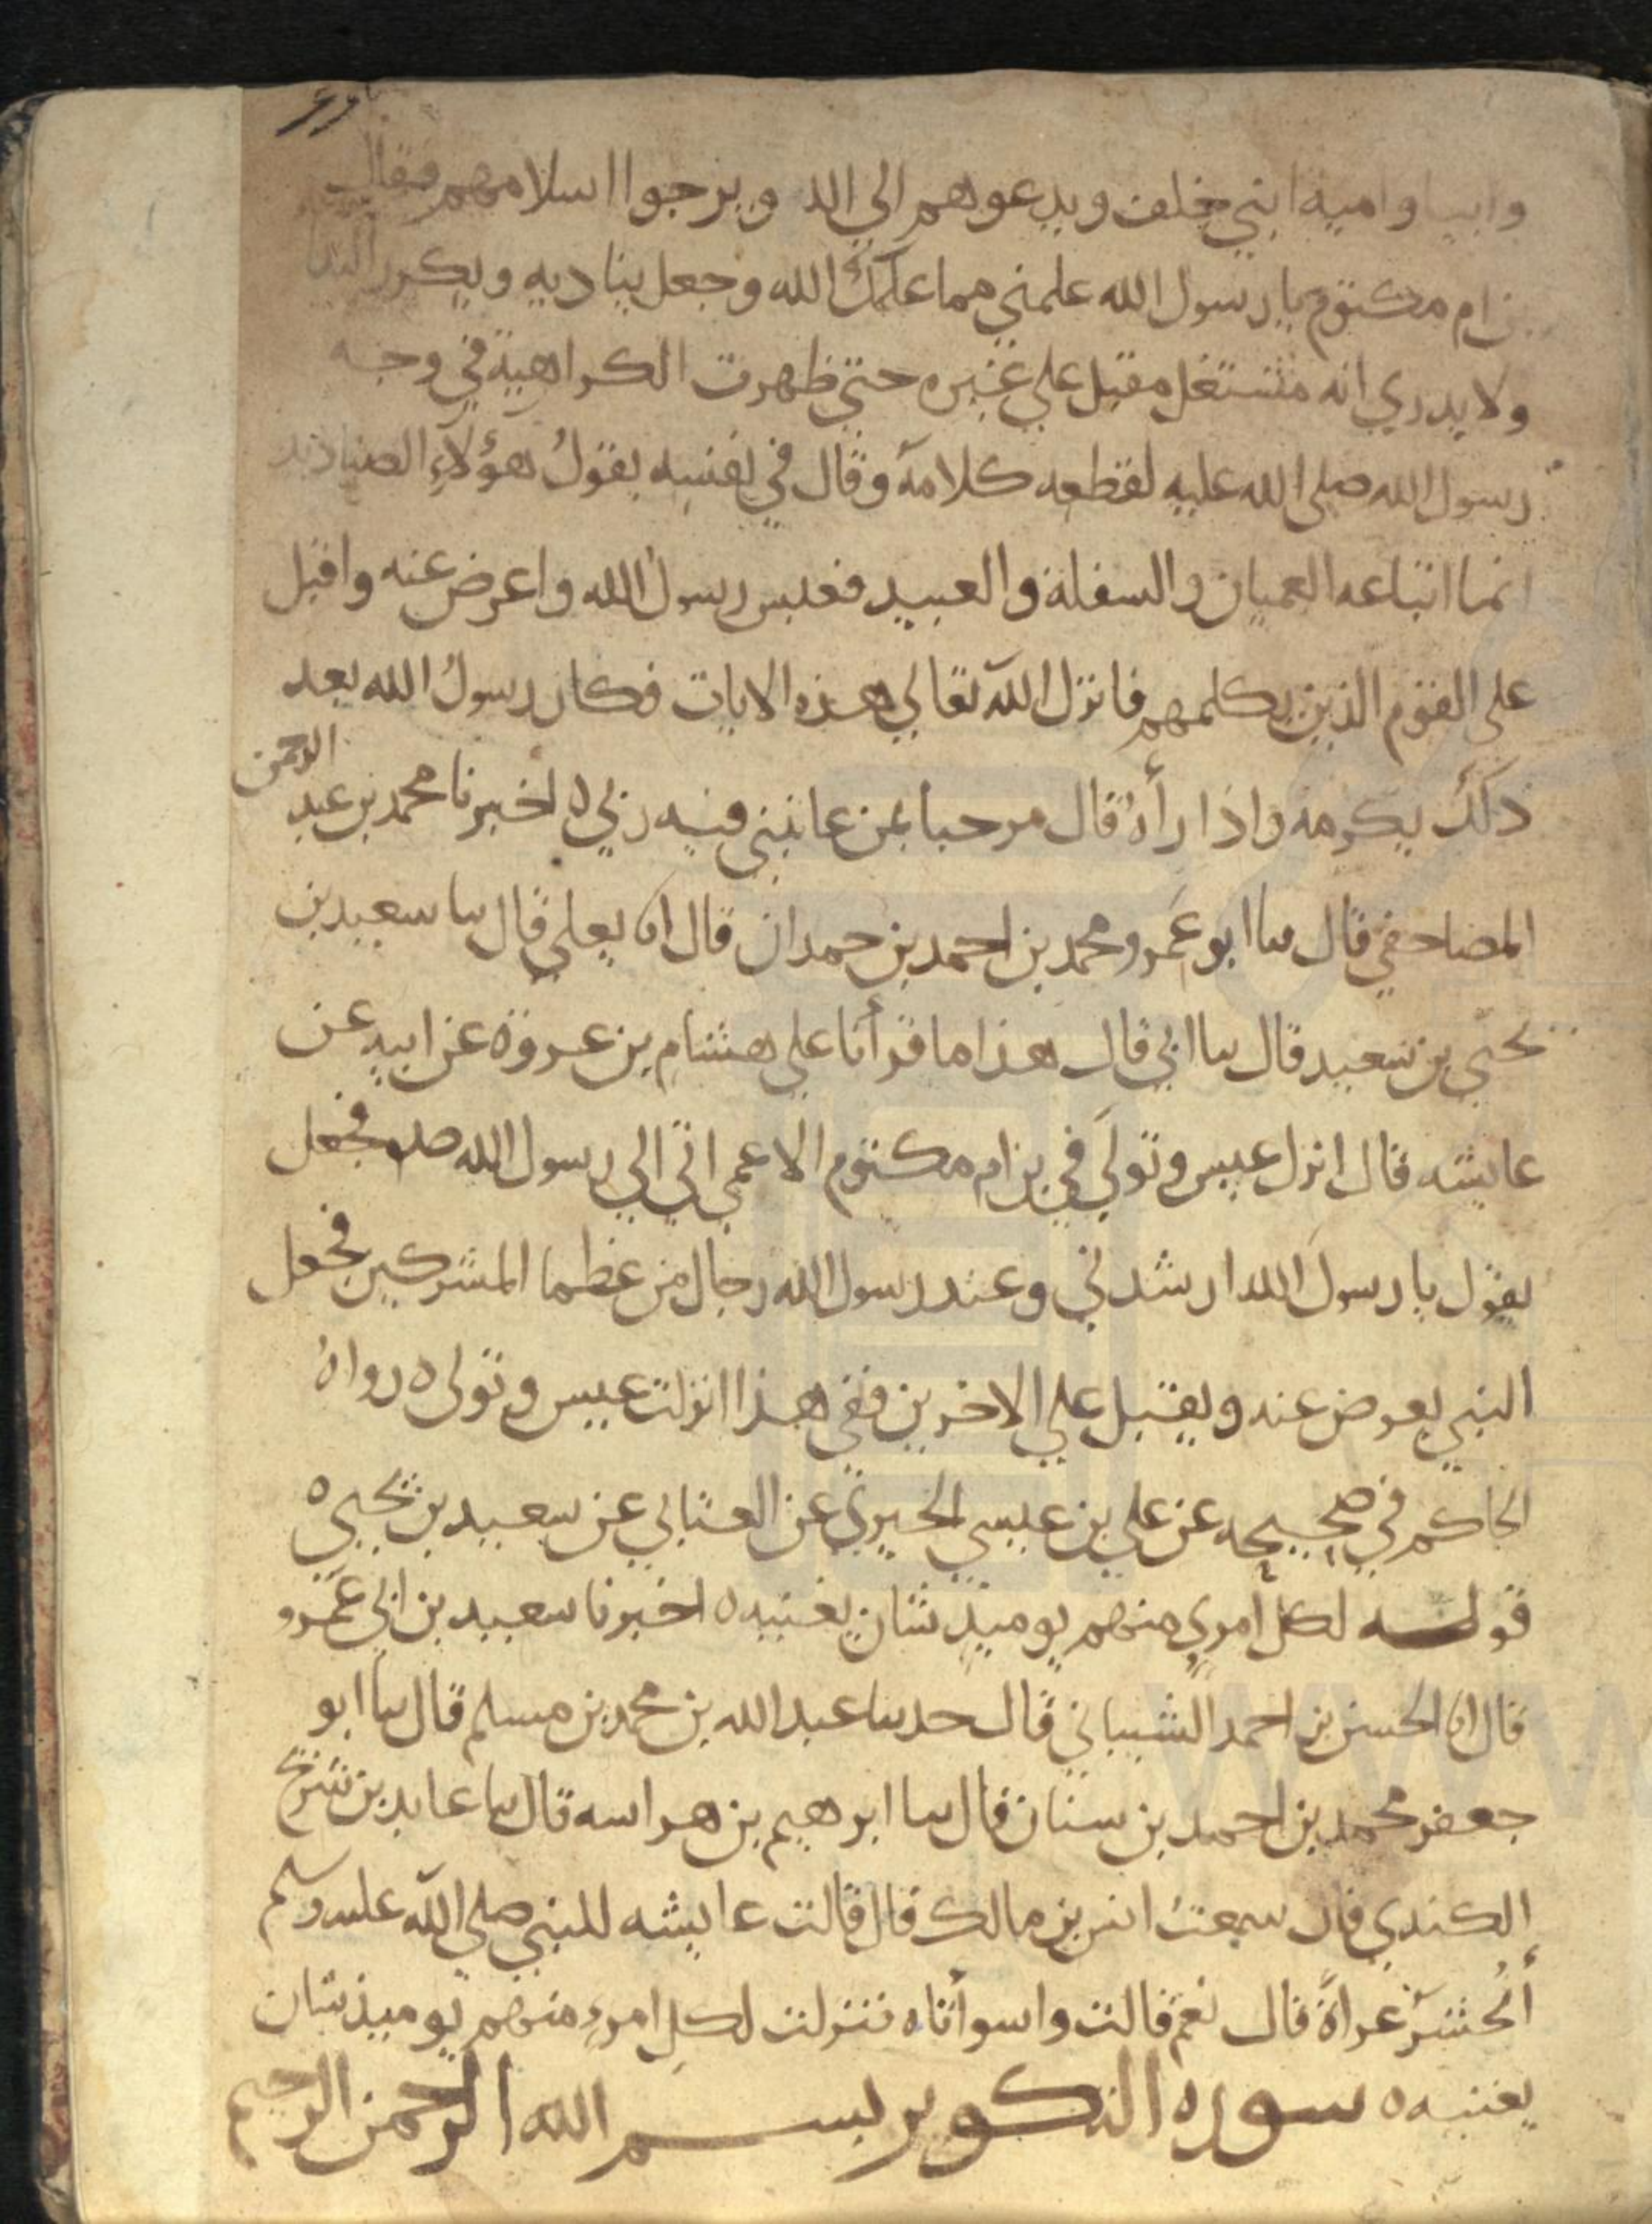 وابيا وامية ابني خلف ويدعوهم الي الله ويرجوا اسلامهم فقال
بن ام مكتوم يا رسول الله علمني مما علمك الله وجعل يناديه ويكرر الندا
ولا يدري انه مشتغل مقبل علي غيره حتي ظهرت الكراهية في وجه
رسول الله صلى الله عليه لقطعه كلامه وقال في نفسه يقول هؤلاء الصناديد
انما اتباعه العميان والسفلة والعبيد فعبس رسول الله واعرض عنه واقبل
على القوم الذين يكلمهم فانزل الله تعالي هذه الايات فكان رسول الله بعد
ذلك يكرمه واذا رأه قال مرحبا بمن عاتبني فيه ربي ه اخبرنا محمد بن عبد الرحمن
المصاحفي قال سا ابو عمرو محمد بن احمد بن حمدان قال انا يعلي قال سا سعيد بن
يحيي بن سعيد قال سا ابي قال هذا ما قرأنا علي هشام بن عروة عن ابيه عن
عايشه قال انزل عبس وتولي في بن ام مكتوم الاعمي اتي الي رسول الله صلم فجعل
يقول يا رسول الله ارشدني وعند رسول الله رجال من عظما المشركين فجعل
النبي يعرض عنه ويقبل علي الاخرين ففي هذا انزلت عبس وتولى ه رواه
الحاكم في صحيحه عن علي بن عيسي الحيري عن العتابي عن سعيد بن يحيي ه
قوله لكل امري منهم يوميذ شان يغنيه ه اخبرنا سعيد بن ابي عمرو
قال انا الحسن بن احمد الشيباني قال حدسا عبد الله بن محمد بن مسلم قال سا ابو
جعفر محمد بن احمد بن سنان قال سا ابرهيم بن هراسه قال سا عايد بن شريح
الكندي قال سمعت انس بن مالك قال قالت عايشه للنبي صلي الله عليه وسلم
أنحشر عراة قال نعم قالت واسوأتاه فنزلت لكل امرء منهم يوميذ شان
يغنيه ه سوره التكوير بسم الله الرحمن الرحيم